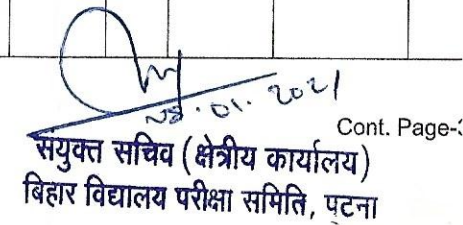 .01.2021
Cont. Page-
संयुक्त सचिव (क्षेत्रीय कार्यालय)
बिहार विद्यालय परीक्षा समिति, पटना